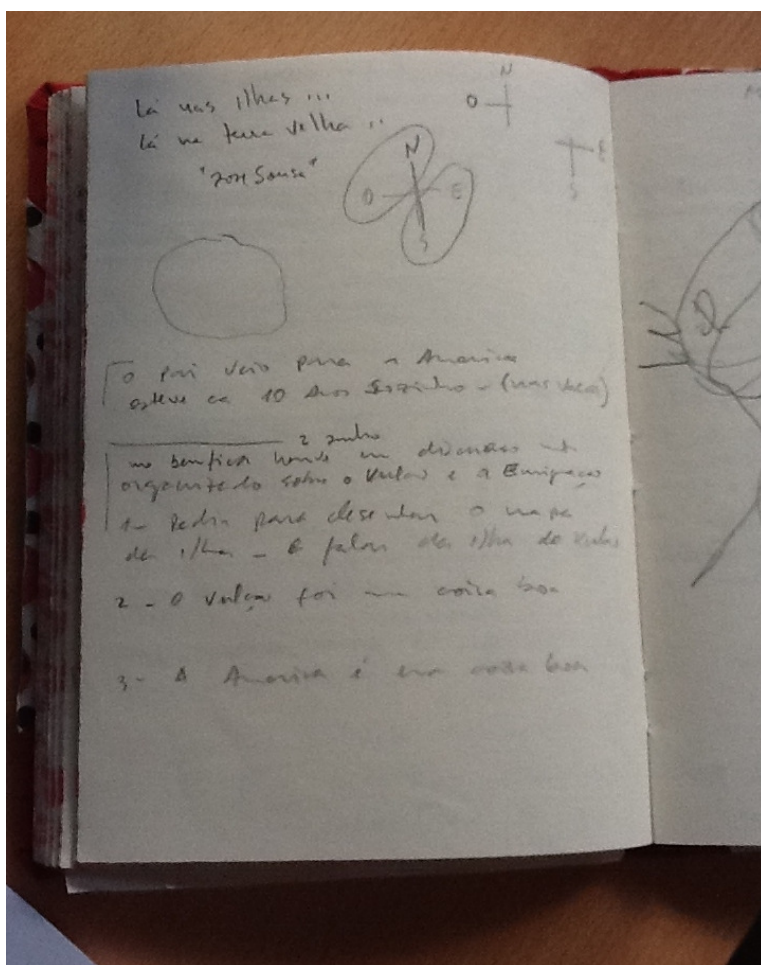 Lá nas ilhas ...
Lá na terra velha ..
"José Sousa"
N
O
E
S
N
O E
S
O pai veio para a America
esteve ca 10 anos sozinho - (nas vacas)
2 junho
no benfica houve um discurso
organizado sobre o Vulcão e a Emigração
1 - Pedir para desenhar o mapa
da ilha - e falar da ilha do
2 - O vulcão foi uma coisa boa
3 - A America é uma coisa boa